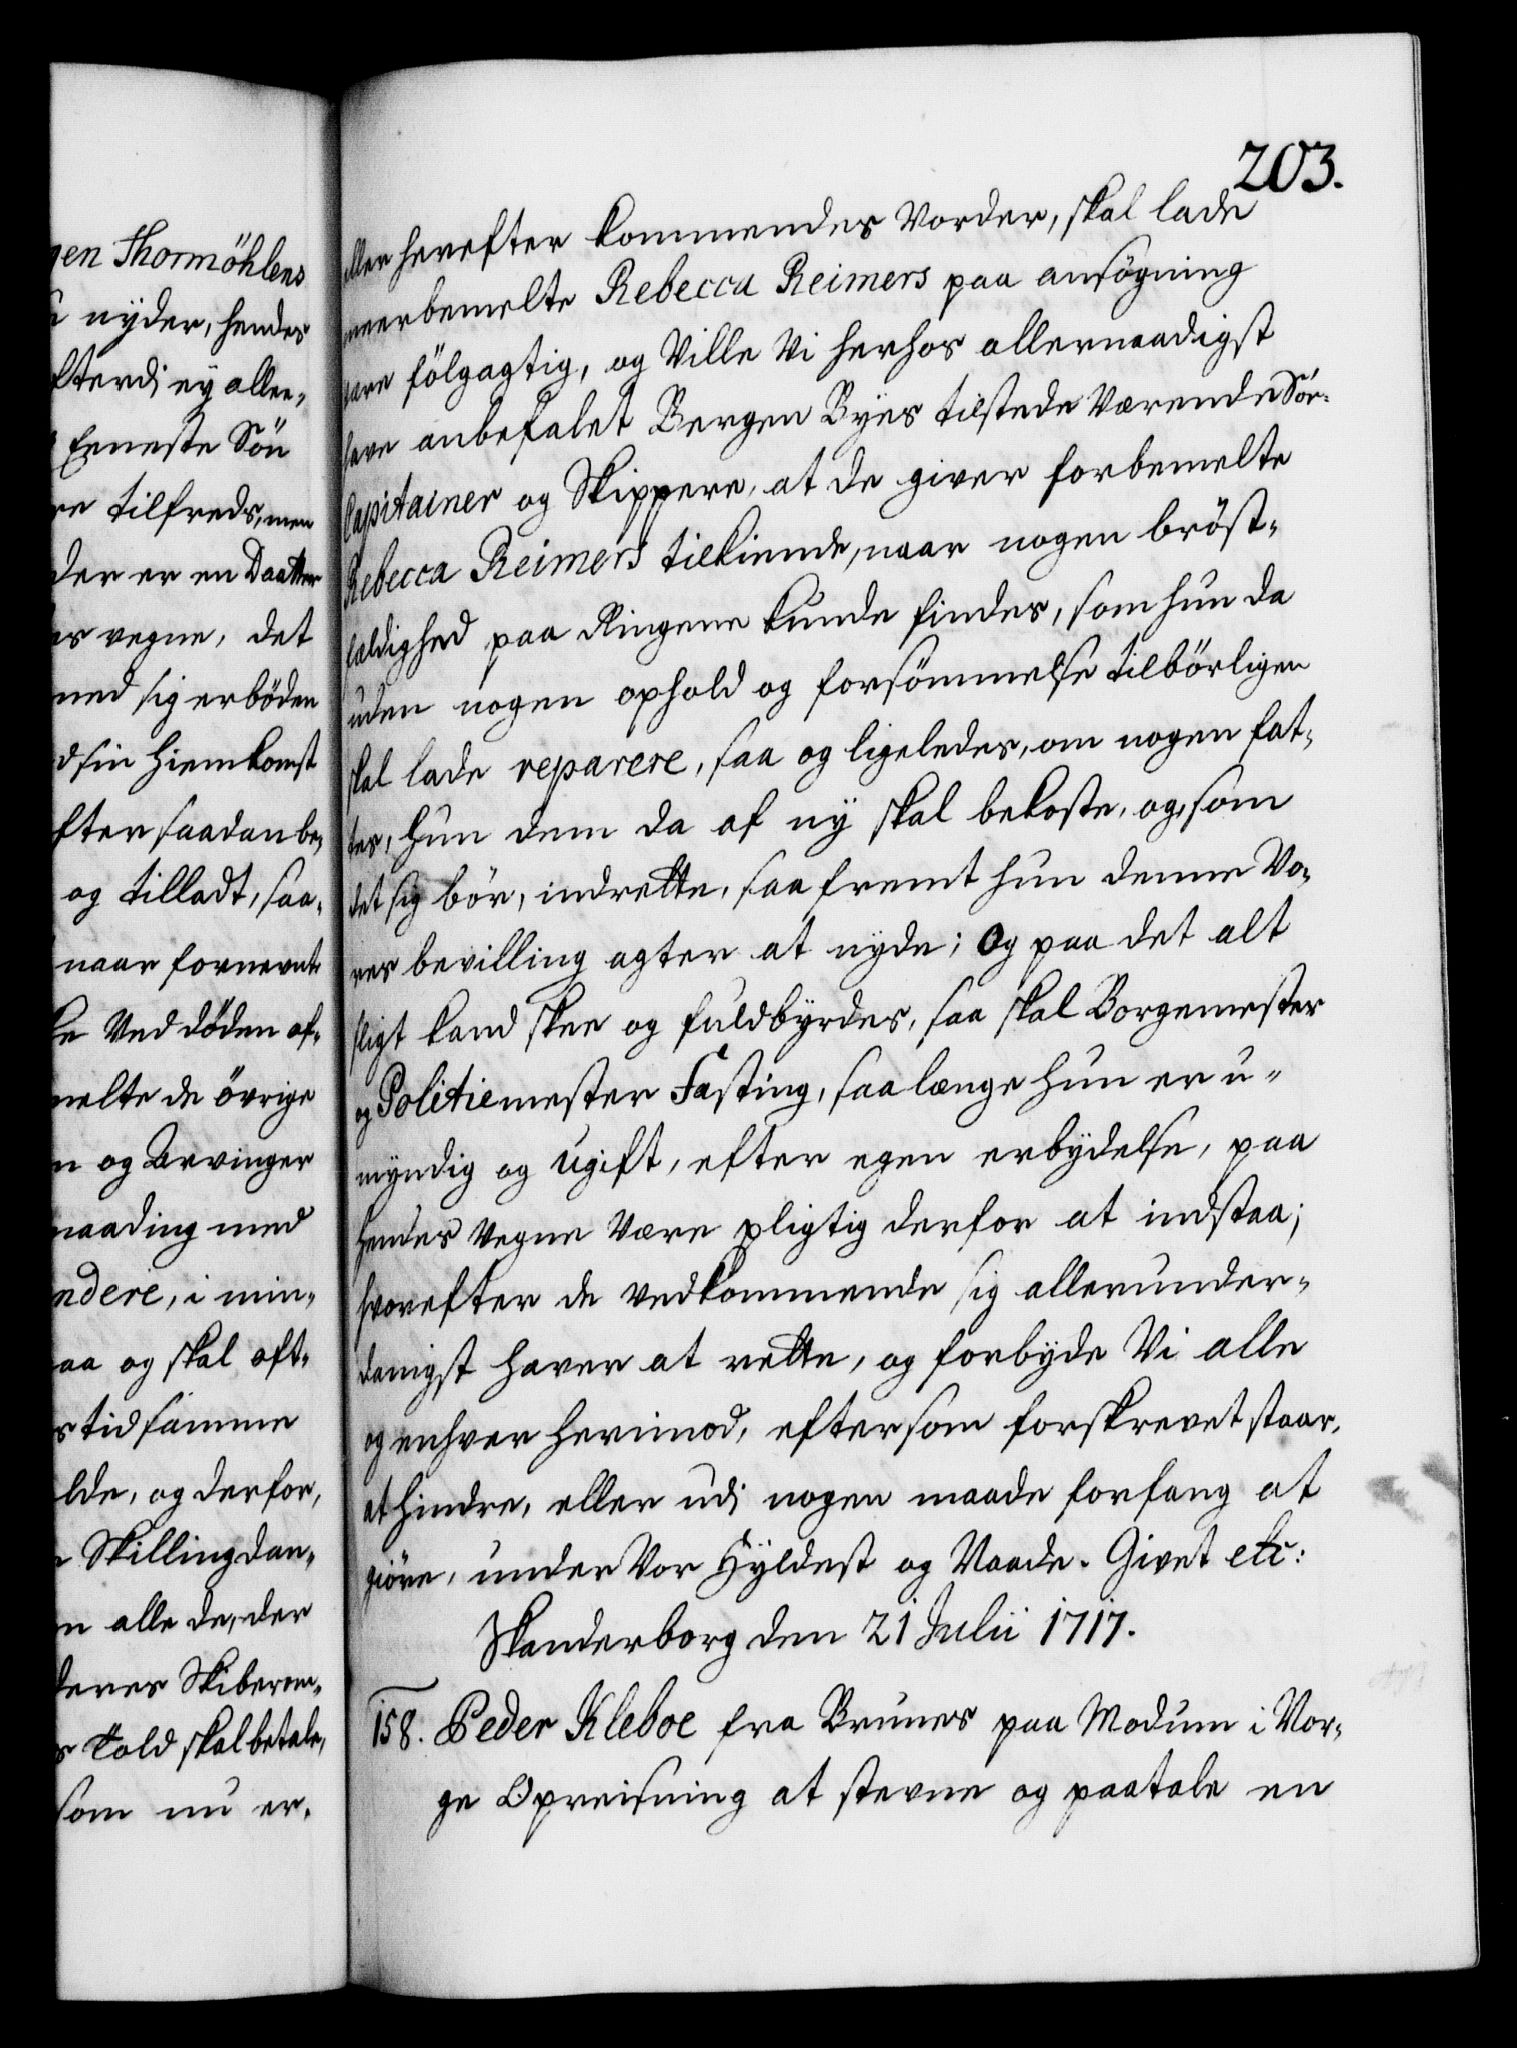 203.
eller herefter kommendes Vorder, skal lade
meerbemelte Rebecca Reimers paa ansögning
være fölgagtig, og Ville Vi herhos allernaadigst
have anbefalet Bergen Byes tilstede Værende Sör-
Capitainer og Skippere, at de giver forbemelte
Rebecca Reimers tilkiende, naar nogen bröst-
fældighed paa Ringene kunde findes, som hun da
uden nogen ophold og forsömmelse tilbörligen
skal lade reparere, saa og ligeledes, om nogen fat-
tes, hun dem da af ny skal bekoste, og, som
det sig bör, indrette, saafremt hun denne Vo-
res bevilling agter at nyde; Og paa det alt
sligt kand skee og fuldbyrdes, saa skal Borgemester
og Politiemester Fasting, saalænge hun er u-
myndig og ugift, efter egen erbydelse, paa
hendes Vegne Være pligtig derfor at indstaa;
hvorefter de vedkommende sig allerunder-
danigst haver at rette, og forbyde Vi alle
og enhver herimod, eftersom forskrevet staar,
at hindre, eller udj nogen maade forfang at
giöre, under Vor Hyldest og Naade. Givet etc:
Skanderborg den 21 Julii 1717.
158. Peder Kleboe fra Brunes paa Modum i Nor-
ge Opreisning at stevne og paatale en
gen Thormöhlens
nyder, hendes
fterdj ey allee-
Eeneste Sön
re tilfreds, men
der er en Daatter
es vegne, det
med sig erböden
d sin Hiemkomst
fter saadan be-
og tilladt, saa-
naar fornevnte
ke Ved döden af-
melte de övrige
n og Arvinger
naading med
ndere, i min-
aa og skal oft-
s tid samme
lde, og derfor,
Skilling dan-
n alle de, der
deres Skiberom-
s Told skal betale,
som nu er-